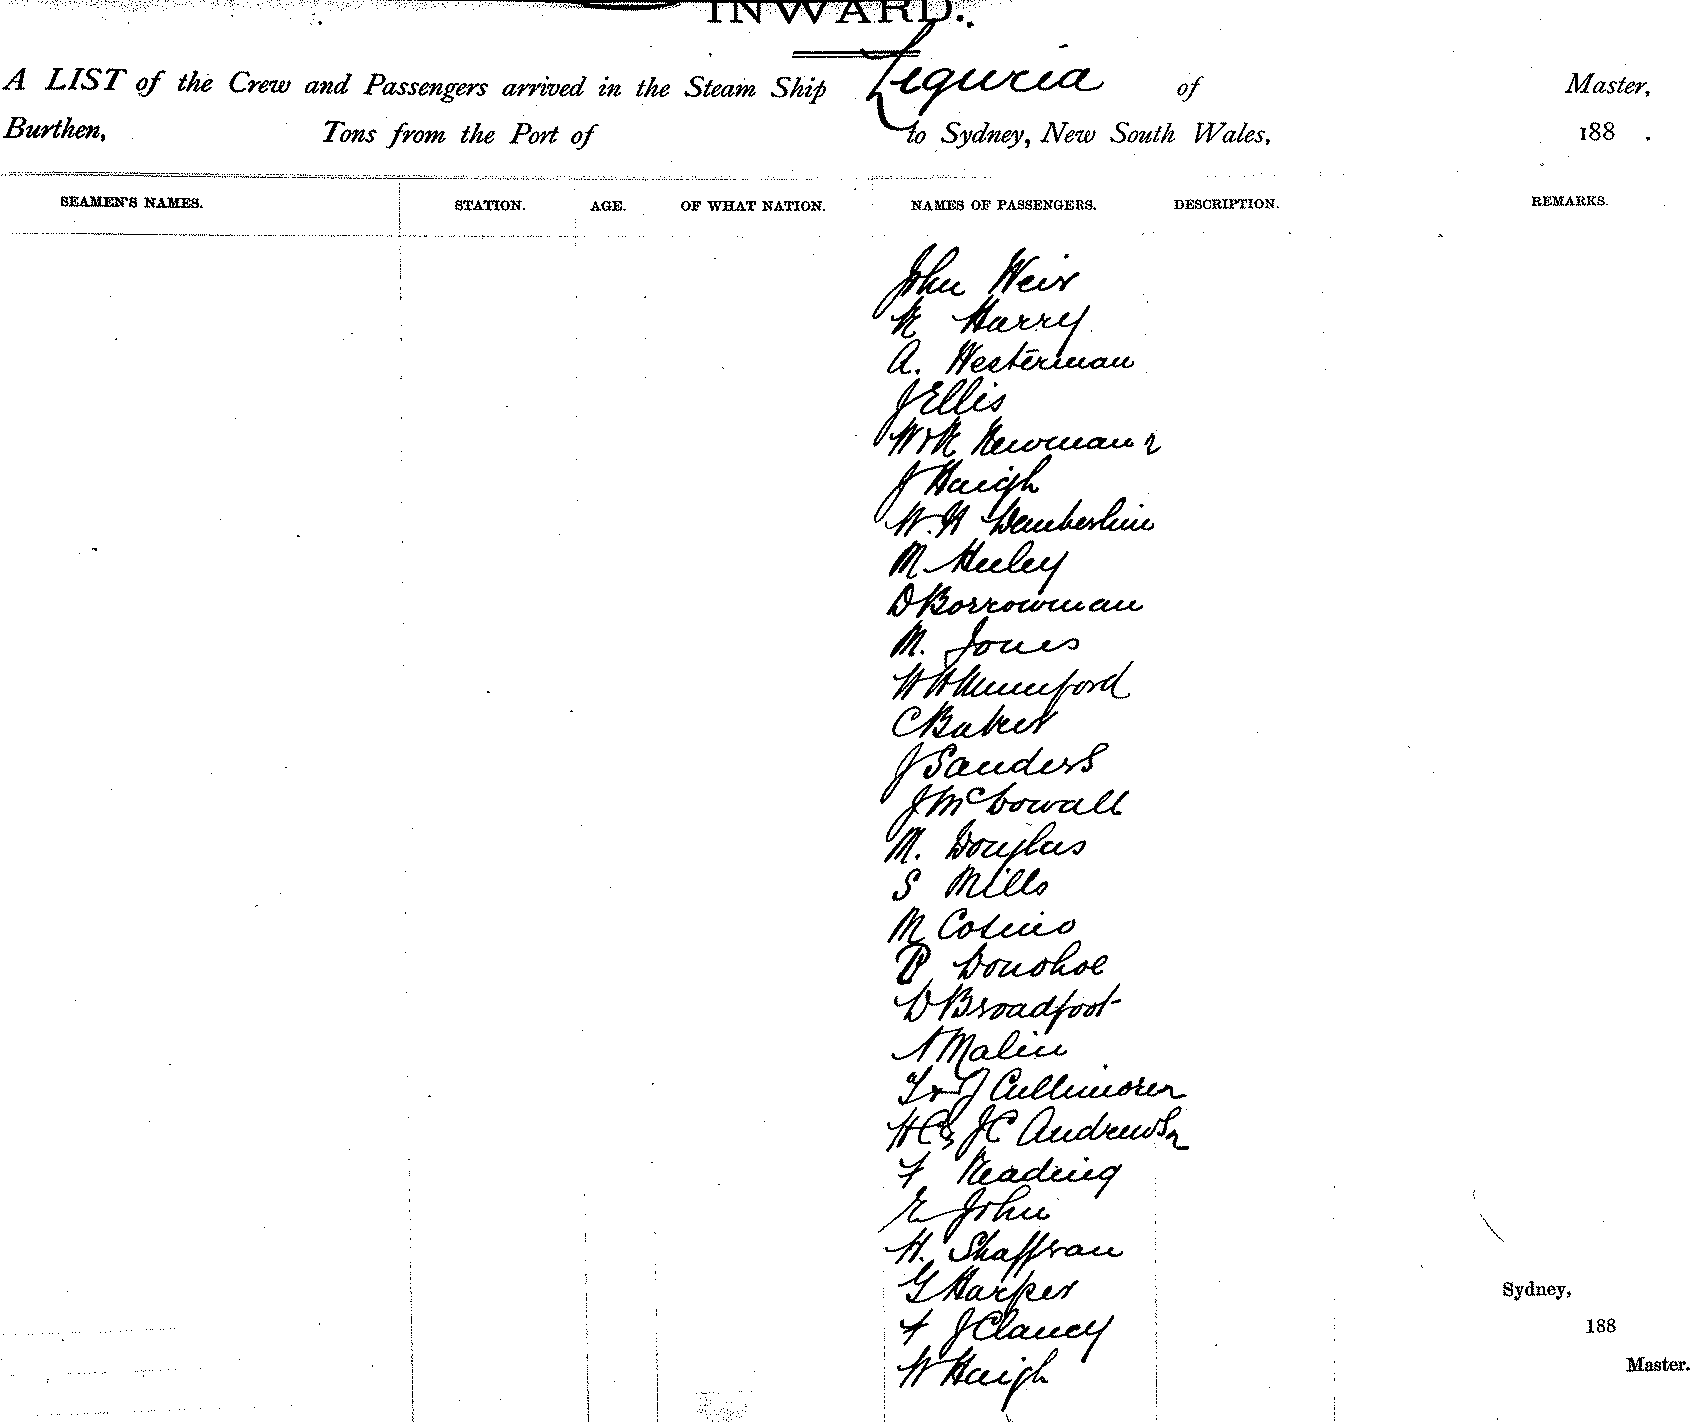 INWARD.
A LIST of the Crew and Passengers arrived in the Steam Ship Liguria of Master,
Burthen, Tons from the Port of to Sydney, New South Wales, 188 .
SEAMEN'S NAMES. STATION. AGE. OF WHAT NATION. NAMES OF PASSENGERS. DESCRIPTION. REMARKS.
John Weir
K Harry
A. Westerman
J Ellis
W & K Newman 2
J Haigh
W. H
M Healey
D Borrowman
M. Jones
H H Mumford
C Baker
J Sanders
J McDowall
M. Douglas
S Mills
M
P Donohoe
D Broadfoot
A Malin
T & J Cullimore 2
H C & J C Andrews 2
F Reading
E John
H. Shaffran
G Harper
F J Clancy
W Haigh
Sydney,
188
Master.